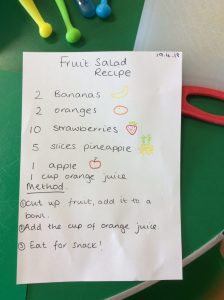 19.6.18
Fruit Salad
Recipe
2 Bananas
2 oranges
10 strawberries
5 slices pineapple
1 apple
1 cup orange juice
Method.
① Cut up fruit, add it to a
bowl.
② Add the cup of orange juice
③ Eat for snack!